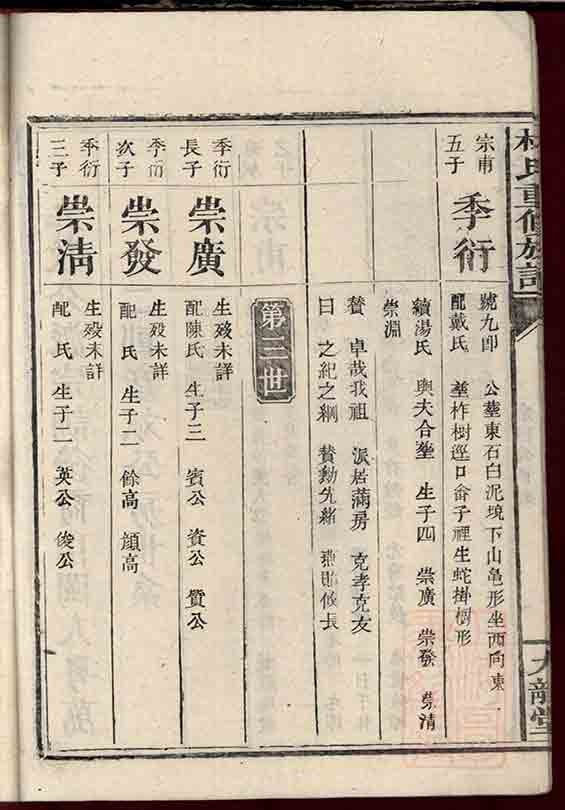 林氏重修族譜
九龍堂
宗甫五子
季衍
號九郎 公塟東石白泥境下山龜形坐西向東
配戴氏 塟柞樹逕口畲子裡生蛇掛樹形
續湯氏 與夫合塟 生子四 崇廣 崇發 崇清
崇淵
贊 卓哉我祖 派居滿房 克孝克友
曰 之紀之綱 贊勷先緒 燕貽攸長
第三世
季衍長子
崇廣
生殁未詳
配陳氏 生子三 賓公 資公 質公
季衍次子
崇發
生殁未詳
配 氏 生子二 餘高 顔高
季衍三子
崇清
生殁未詳
配 氏 生子二 英公 俊公